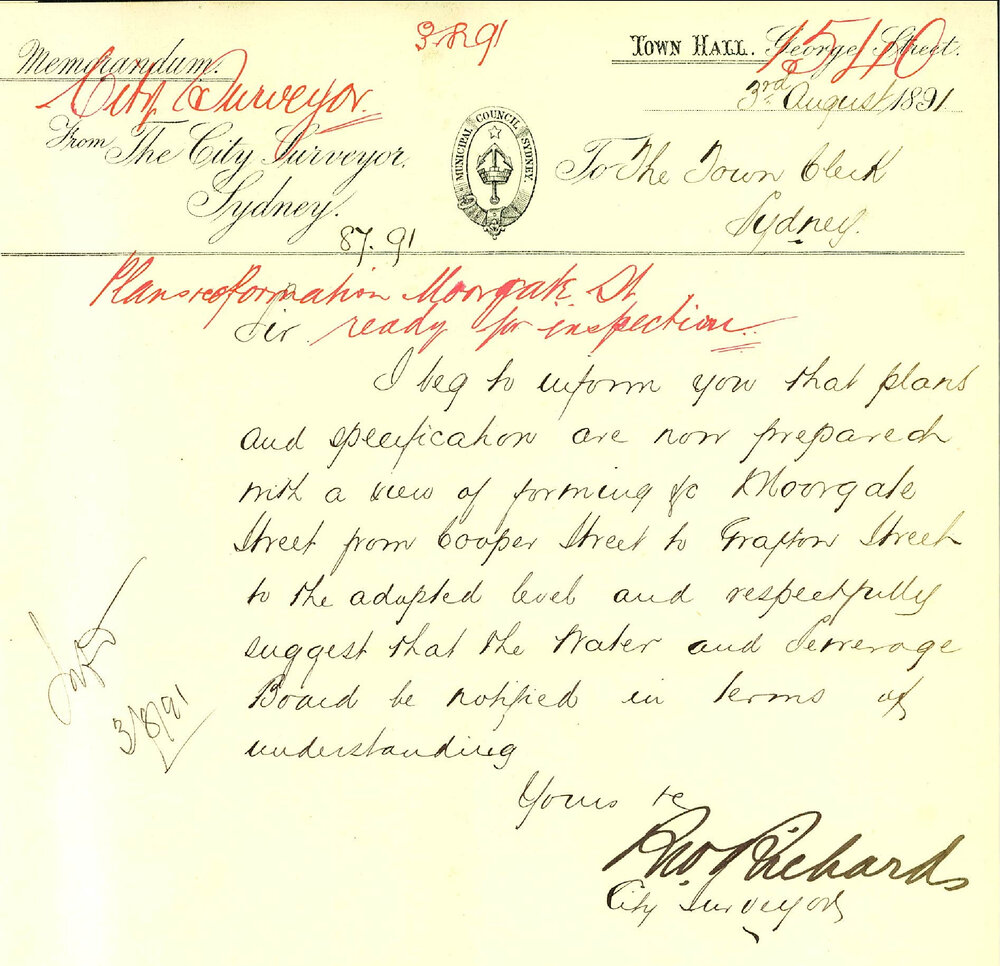 3.8.91
Town Hall. George Street.
1540
3rd August 1891
Memorandum.
City Surveyor.
From The City Surveyor,
Sydney.
MUNICIPAL COUNCIL SYDNEY.
To The Town Clerk
Sydney.
87.91
Plans re formation Moorgate St
ready for inspection
Sir
I beg to inform you that plans
and specification are now prepared
with a view of forming &c Moorgate
Street from Cooper Street to Grafton Street
to the adopted level and respectfully
suggest that the Water and Sewerage
Board be notified in terms of
understanding
3/8/91
Yours &c
Richards
City Surveyor